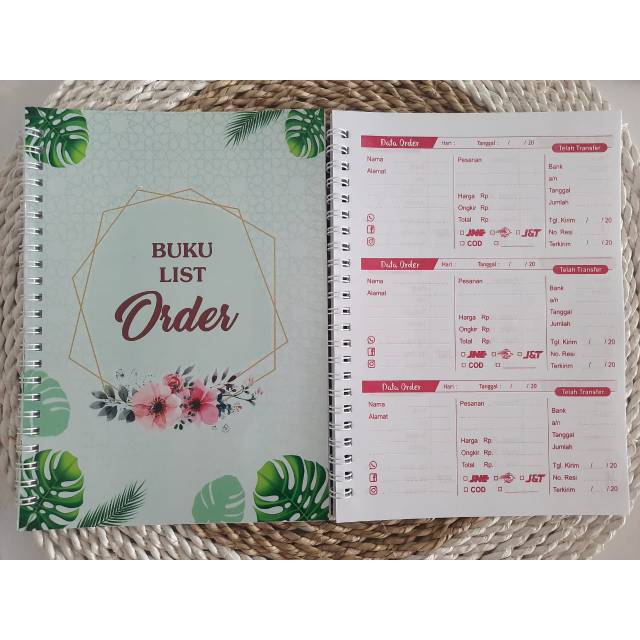 BUKU
LIST
Order
Data Order Hari : Tanggal : / / 20 Telah Transfer
Nama Pesanan Bank
Alamat a/n
Tanggal
Harga Rp. Jumlah
Ongkir Rp.
Total Rp. Tgl. Kirim / / 20
JNE J&T No. Resi
COD Terkirim / / 20
Data Order Hari : Tanggal : / / 20 Telah Transfer
Nama Pesanan Bank
Alamat a/n
Tanggal
Harga Rp. Jumlah
Ongkir Rp.
Total Rp. Tgl. Kirim / / 20
JNE J&T No. Resi
COD Terkirim / / 20
Data Order Hari : Tanggal : / / 20 Telah Transfer
Nama Pesanan Bank
Alamat a/n
Tanggal
Harga Rp. Jumlah
Ongkir Rp.
Total Rp. Tgl. Kirim / / 20
JNE J&T No. Resi
COD Terkirim / / 20